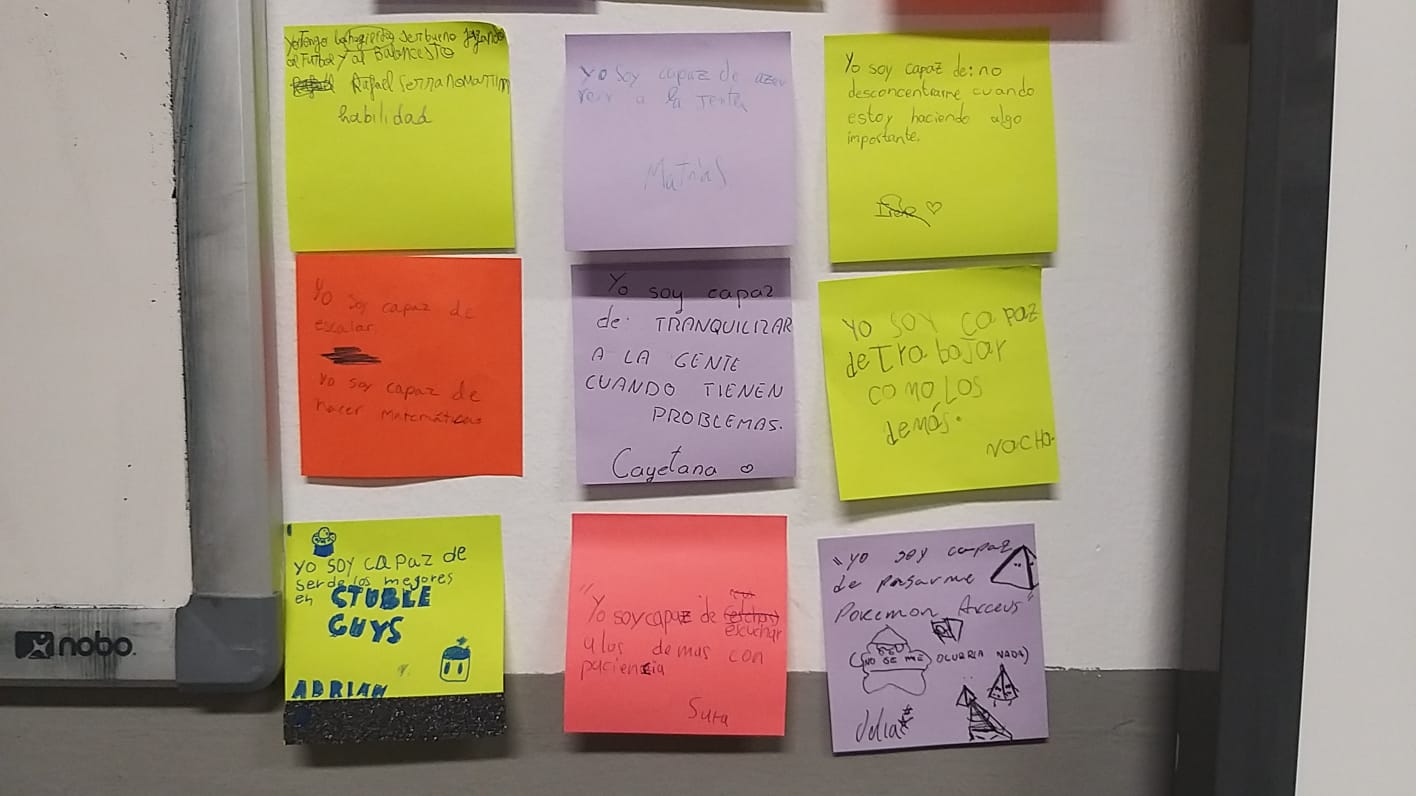 Yo tengo la habilidad ser bueno jugando
al Futbol y al Baloncesto
Rafael Serrano Martin
habilidad
Yo soy capaz de azer
reir a la jente
Matias
Yo soy capaz de: no
desconcentrarme cuando
estoy haciendo algo
importante.
Yo soy capaz de
escalar
Yo soy capaz de
hacer matemáticas
Yo soy capaz
de: TRANQUILIZAR
A LA GENTE
CUANDO TIENEN
PROBLEMAS.
Cayetana
YO SOY CAPAZ
de trabajar
COMO LOS
demás.
NACHO.
YO SOY CAPAZ de
ser de los mejores
en STUBLE
GUYS
ADRIAN
"Yo soy capaz de
escuchar
a los demas con
paciencia
Sura
"YO soy capaz
de pasarme
Pokemon Arceus"
(NO SE ME OCURRIA NADA)
Julia
nobo